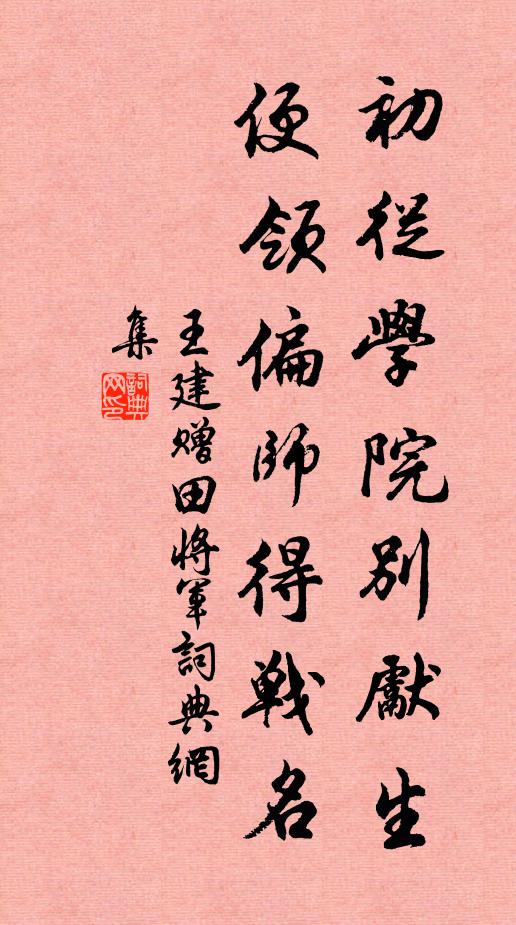 初從學院別獻生
便領偏師得戰名
王建贈田將軍詞典網
集
詞典網印